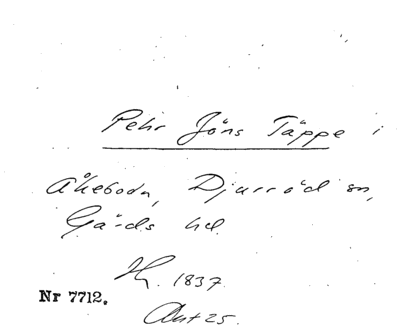 Pehr Jöns Täppe i
Åkeboda, Djurröd sn,
Gärds hd.
H. 1837.
Nr 7712.
Ant 25.